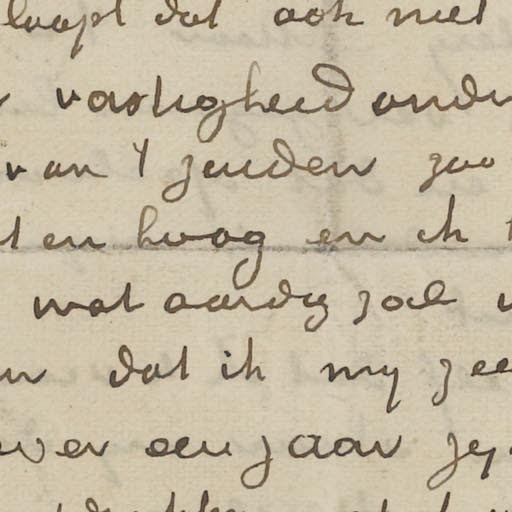 loopt dat ook niet
vastigheid onder
van 't zenden zoo
en hoog en ik
wat aardig zal
dat ik my zee
over een jaar zy